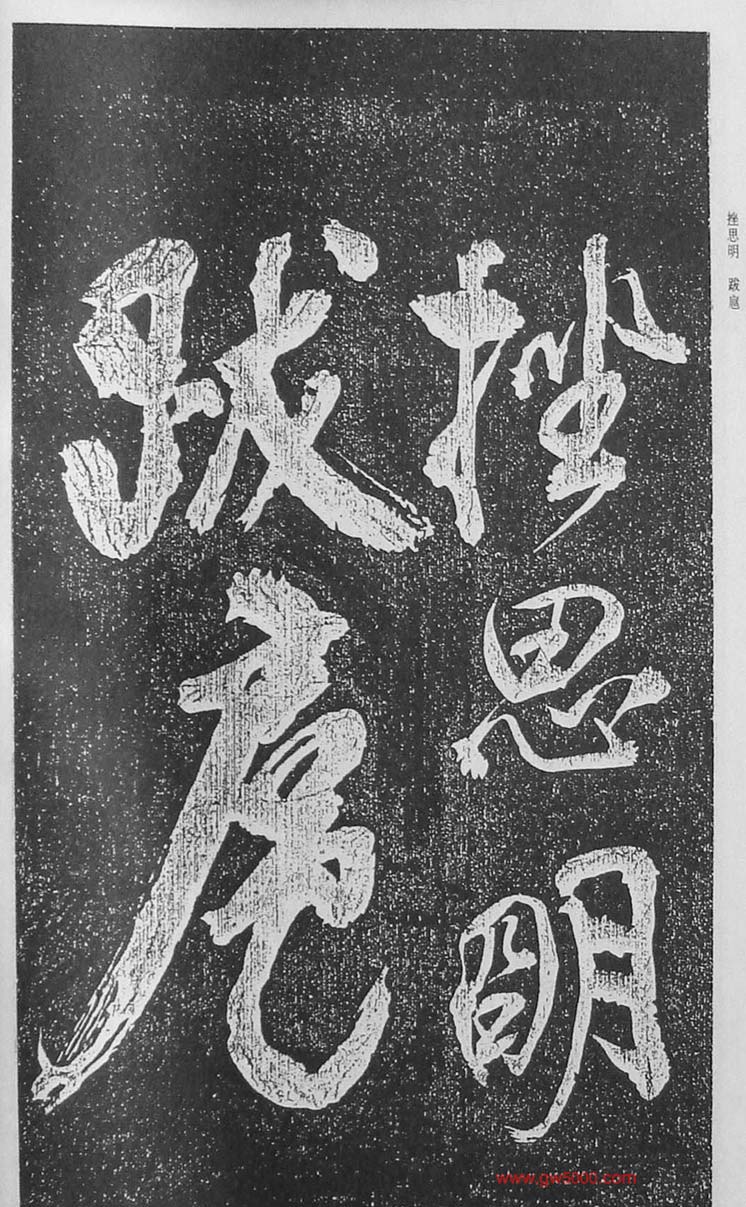 挫思明
跋扈
挫思明 跋扈
www.gw5000.com